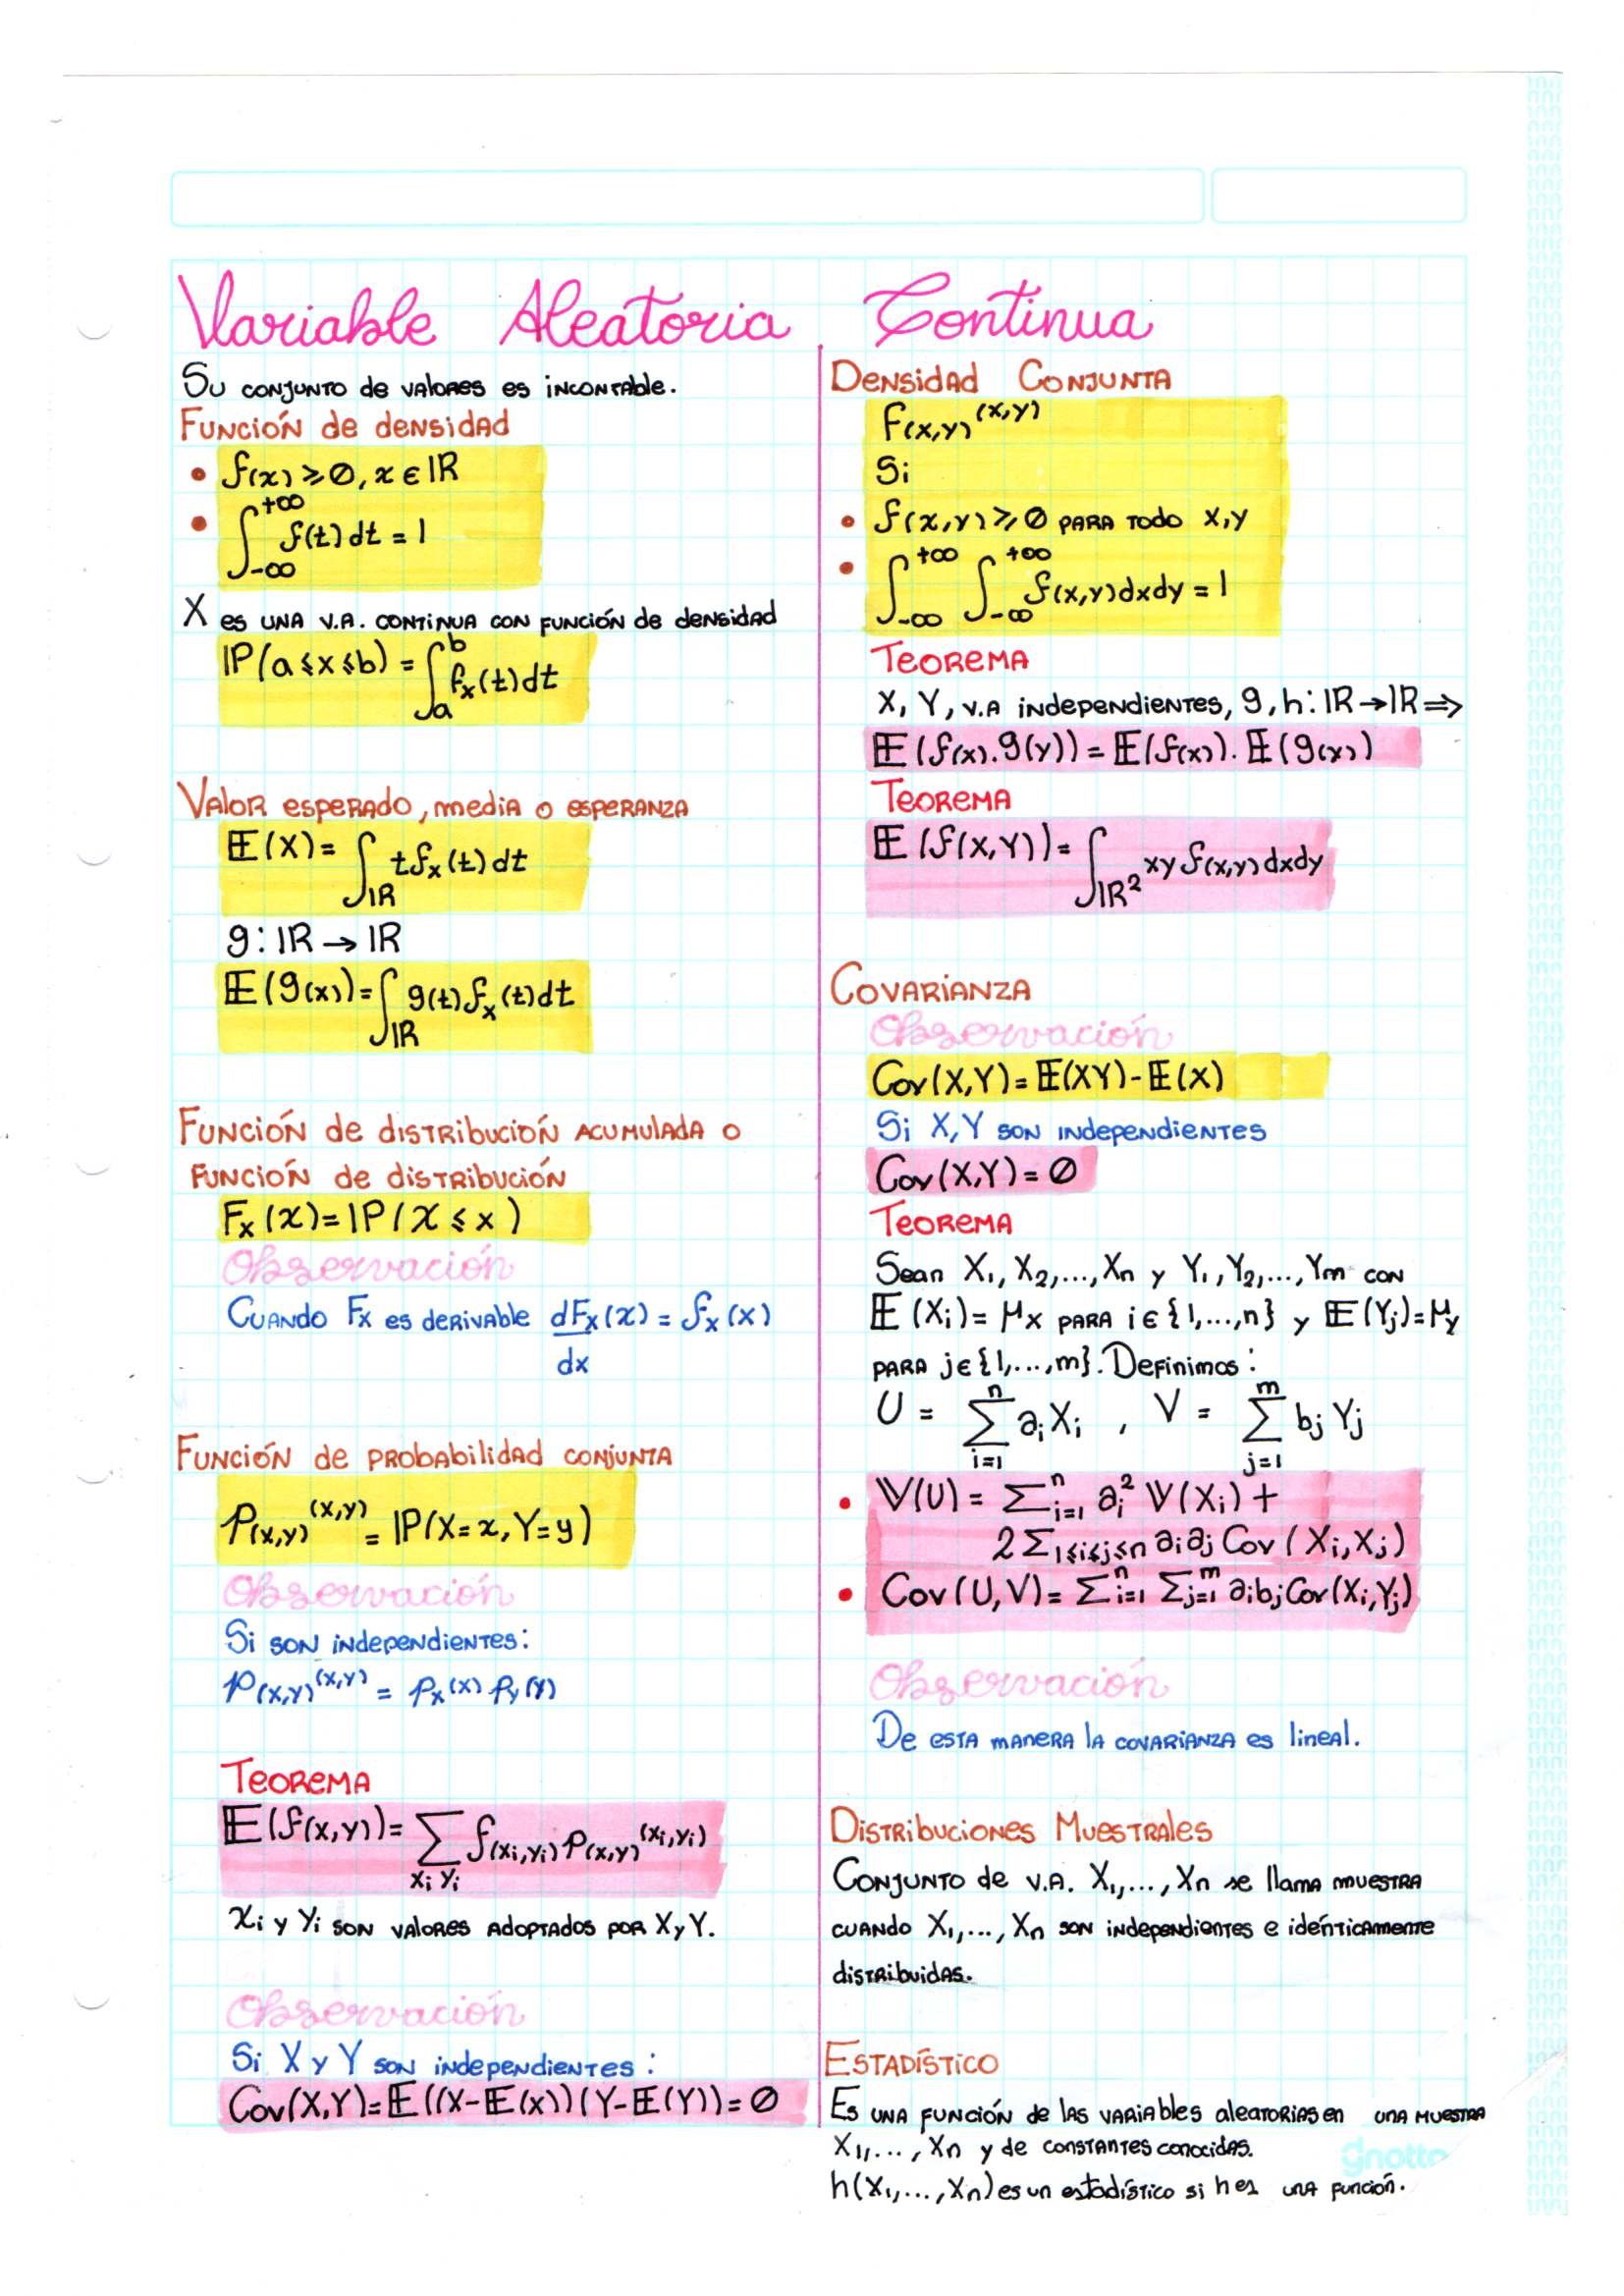 Variable Aleatoria Continua
Su conjunto de valores es incontable.
Función de densidad
• f(x) ≥ 0, x ∈ ℝ
• ∫_{-∞}^{+∞} f(t) dt = 1
X es una v.a. continua con función de densidad
ℙ(a ≤ x ≤ b) = ∫_a^b f_x(t) dt
Valor esperado, media o esperanza
𝔼(X) = ∫_ℝ t f_x(t) dt
g: ℝ → ℝ
𝔼(g(x)) = ∫_ℝ g(t) f_x(t) dt
Función de distribución acumulada o
función de distribución
F_x(x) = ℙ(X ≤ x)
Observación
Cuando F_x es derivable dF_x(x)/dx = f_x(x)
Función de probabilidad conjunta
P_(x,y)^(x,y) = ℙ(X=x, Y=y)
Observación
Si son independientes:
P_(x,y)^(x,y) = P_x(x) P_y(y)
Teorema
𝔼(f(x,y)) = Σ_{x_i y_i} f(x_i,y_i) P_(x,y)^(x_i,y_i)
x_i y y_i son valores adoptados por X y Y.
Observación
Si X y Y son independientes:
Cov(X,Y) = 𝔼((X-𝔼(x))(Y-𝔼(Y)) = 0
Densidad Conjunta
f_(x,y)^(x,y)
Si
• f(x,y) ≥ 0 para todo x,y
• ∫_{-∞}^{+∞} ∫_{-∞}^{+∞} f(x,y) dx dy = 1
Teorema
X, Y, v.a independientes, g,h: ℝ → ℝ ⇒
𝔼(f(x).g(y)) = 𝔼(f(x)). 𝔼(g(x))
Teorema
𝔼(f(X,Y)) = ∫_{ℝ²} xy f(x,y) dx dy
Covarianza
Observación
Cov(X,Y) = 𝔼(XY) - 𝔼(X)
Si X,Y son independientes
Cov(X,Y) = 0
Teorema
Sean X₁, X₂,..., Xn y Y₁, Y₂,..., Ym con
𝔼(X_i) = μ_x para i ∈ {1,...,n} y 𝔼(Y_j) = μ_y
para j ∈ {1,...,m}. Definimos:
U = Σ_{i=1}^n a_i X_i , V = Σ_{j=1}^m b_j Y_j
• 𝕍(U) = Σ_{i=1}^n a_i² 𝕍(X_i) +
2 Σ_{1≤i≤j≤n} a_i a_j Cov(X_i, X_j)
• Cov(U,V) = Σ_{i=1}^n Σ_{j=1}^m a_i b_j Cov(X_i, Y_j)
Observación
De esta manera la covarianza es lineal.
Distribuciones Muestrales
Conjunto de v.a. X₁,..., Xn se llama muestra
cuando X₁,..., Xn son independientes e idénticamente
distribuidas.
Estadístico
Es una función de las variables aleatorias en una muestra
X₁,..., Xn y de constantes conocidas.
h(X₁,..., Xn) es un estadístico si h es una función.
gnotto